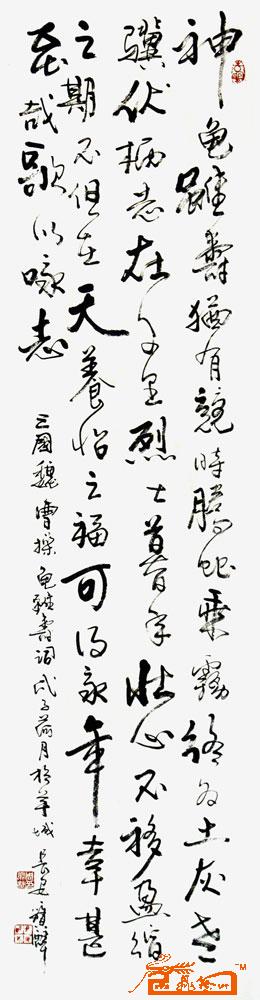 神龜雖壽猶有競時騰蛇乘霧終为土灰老
驥伏櫪志在千里烈士暮年壯心不移盈缩
之期不但在天養怡之福可得永年幸甚
至哉歌以咏志
三國魏曹操龜雖壽詞戊子荷月於羊城長安